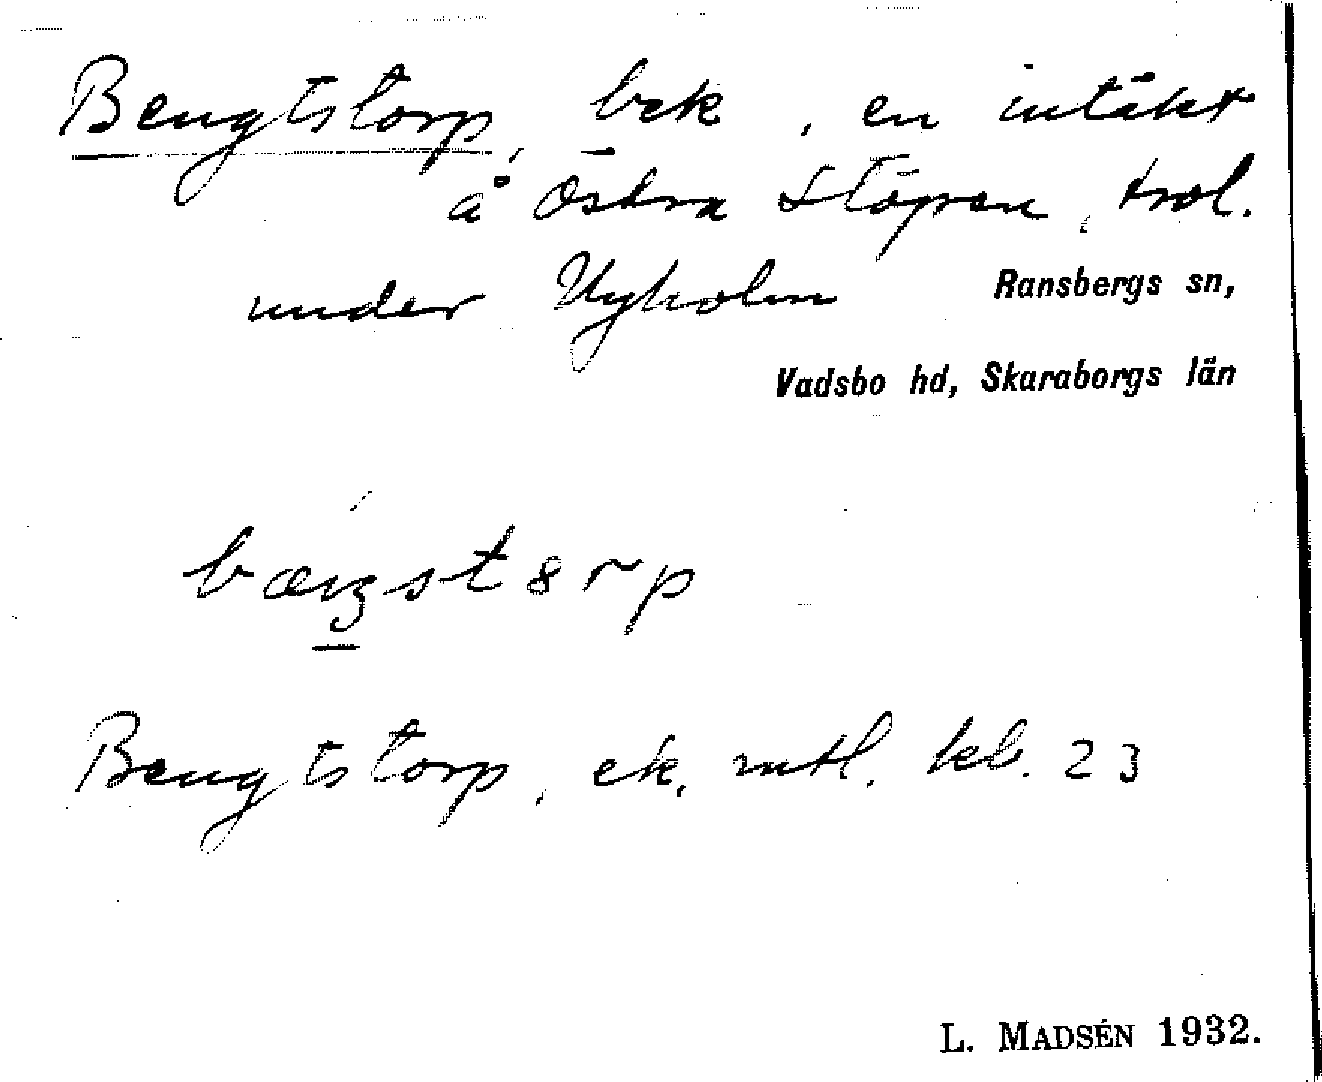 Bengtstorp, bek, en intäkt
å Östra Stöpen, trol.
under Nyholm Ransbergs sn,
Vadsbo hd, Skaraborgs län
Bengtstorp, ek. mtl. kb. 23
L. MADSÉN 1932.